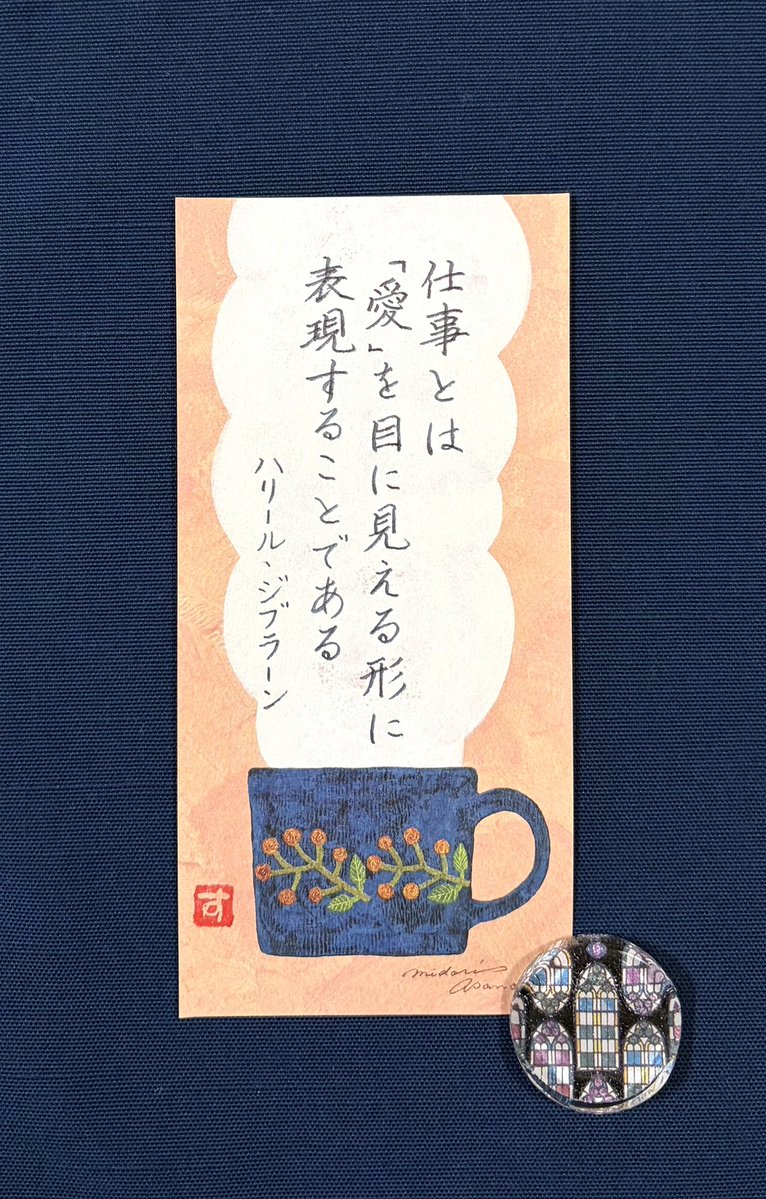 仕事とは
「愛」を目に見える形に
表現することである
ハリール・ジブラーン
す
midori
asano